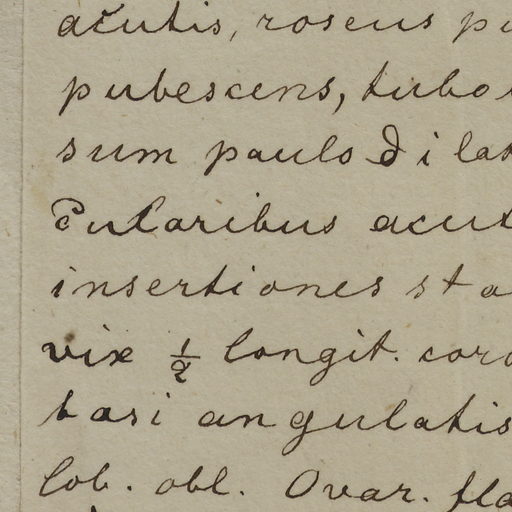 acutis, roseus pu
pubescens, tubo
sum paulo dilat
insertiones sta
vix ½ longit. coro
basi angulatis
lob. obl. Ovar. fla